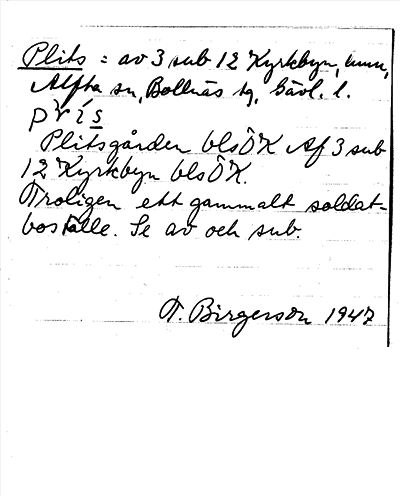 Plits = av 3 sub 12 Kyrkbyn,
Alfta sn, Bollnäs tg, Gävl. l.
prís
Plitsgården blsÖK Af 3 sub
12 Kyrkbyn blsÖK.
Troligen ett gammalt soldat-
boställe. Se av och sub.
T. Birgerson 1947